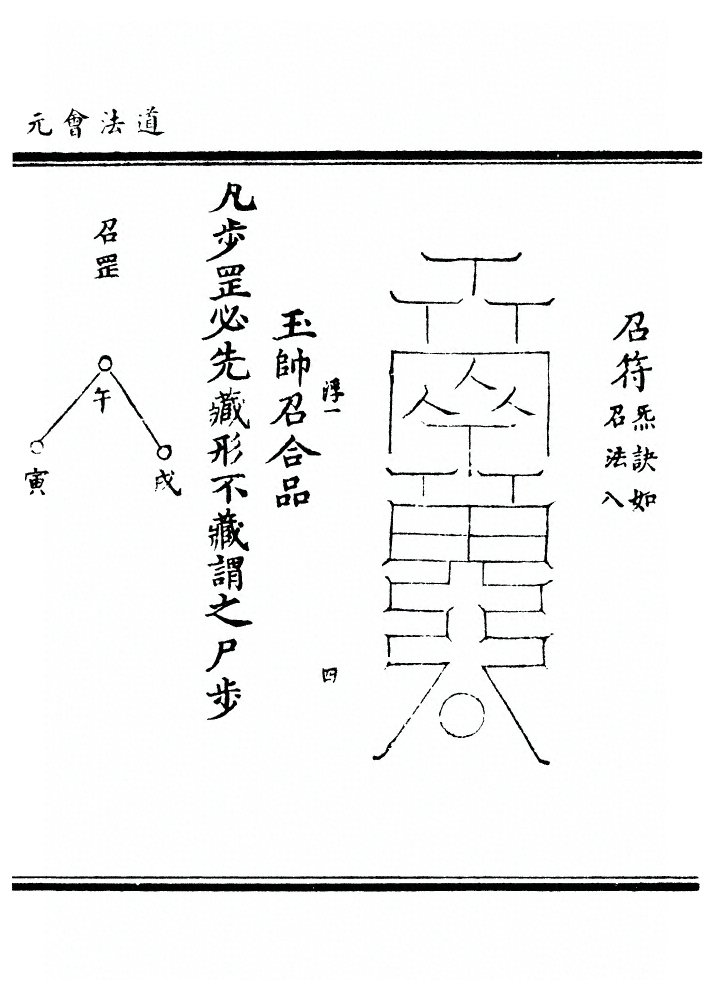 道法會元
召符
炁訣如
召法八
浮一
四
玉帥召合品
凡步罡必先藏形不藏謂之尸步
召罡
午
寅
戌